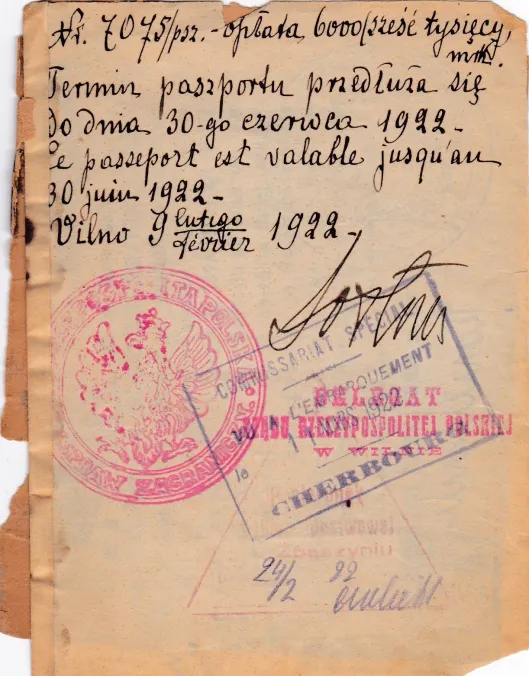 Nr. 7075/psz. - opłata 6000/sześć tysięcy/
mk.
Termin paszportu przedłuża się
do dnia 30-go czerwca 1922 -
Le passeport est valable jusqu'au
30 juin 1922 -
Wilno 9 lutego
février 1922 -
RZECZPOSPOLITA POLSKA
SPRAW ZAGRANICZ.
COMMISSARIAT SPÉCIAL
VU A L'EMBARQUEMENT
le 1 MARS 1922
CHERBOURG
DELEGAT
RZĄDU RZECZYPOSPOLITEJ POLSKIEJ
W WILNIE
Zbąszyniu
24/2 22